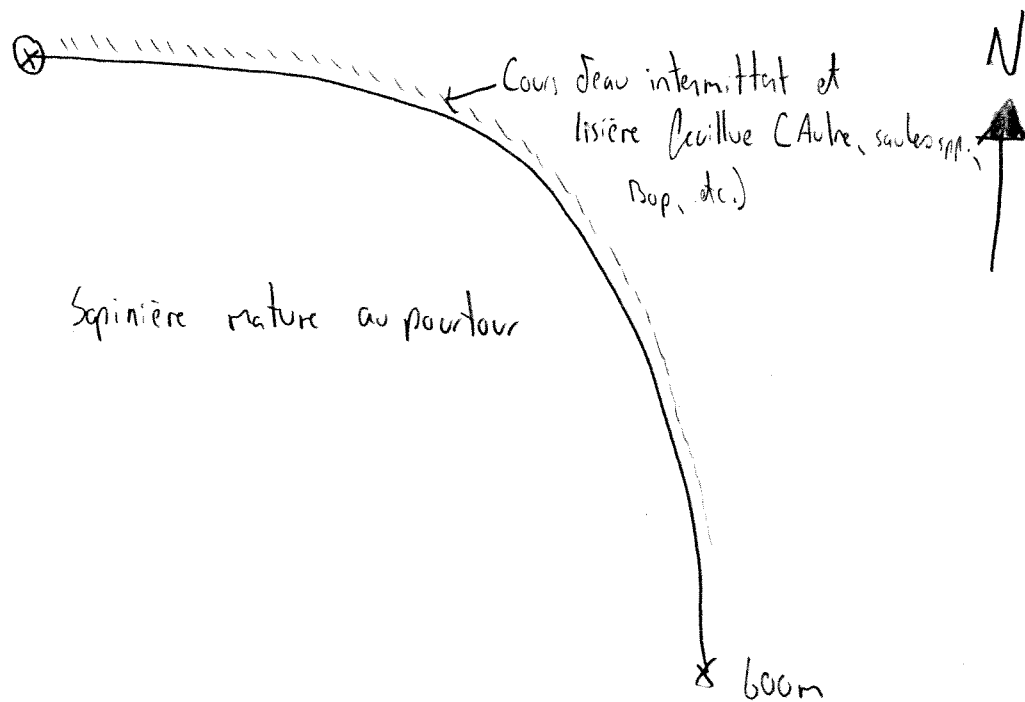 N
Cours d'eau intermittat et
lisière feuillue (Aulne, saules spp.,
Bop, etc.)
Sapinière mature au pourtour
600m